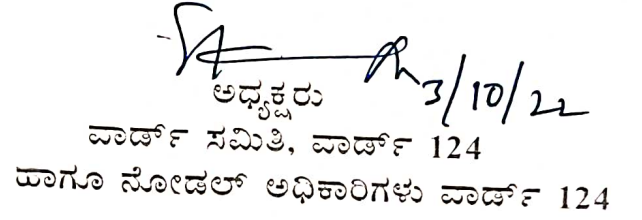 3/10/22
ಅಧ್ಯಕ್ಷರು
ವಾರ್ಡ್ ಸಮಿತಿ, ವಾರ್ಡ್ 124
ಹಾಗೂ ನೋಡಲ್ ಅಧಿಕಾರಿಗಳು ವಾರ್ಡ್ 124